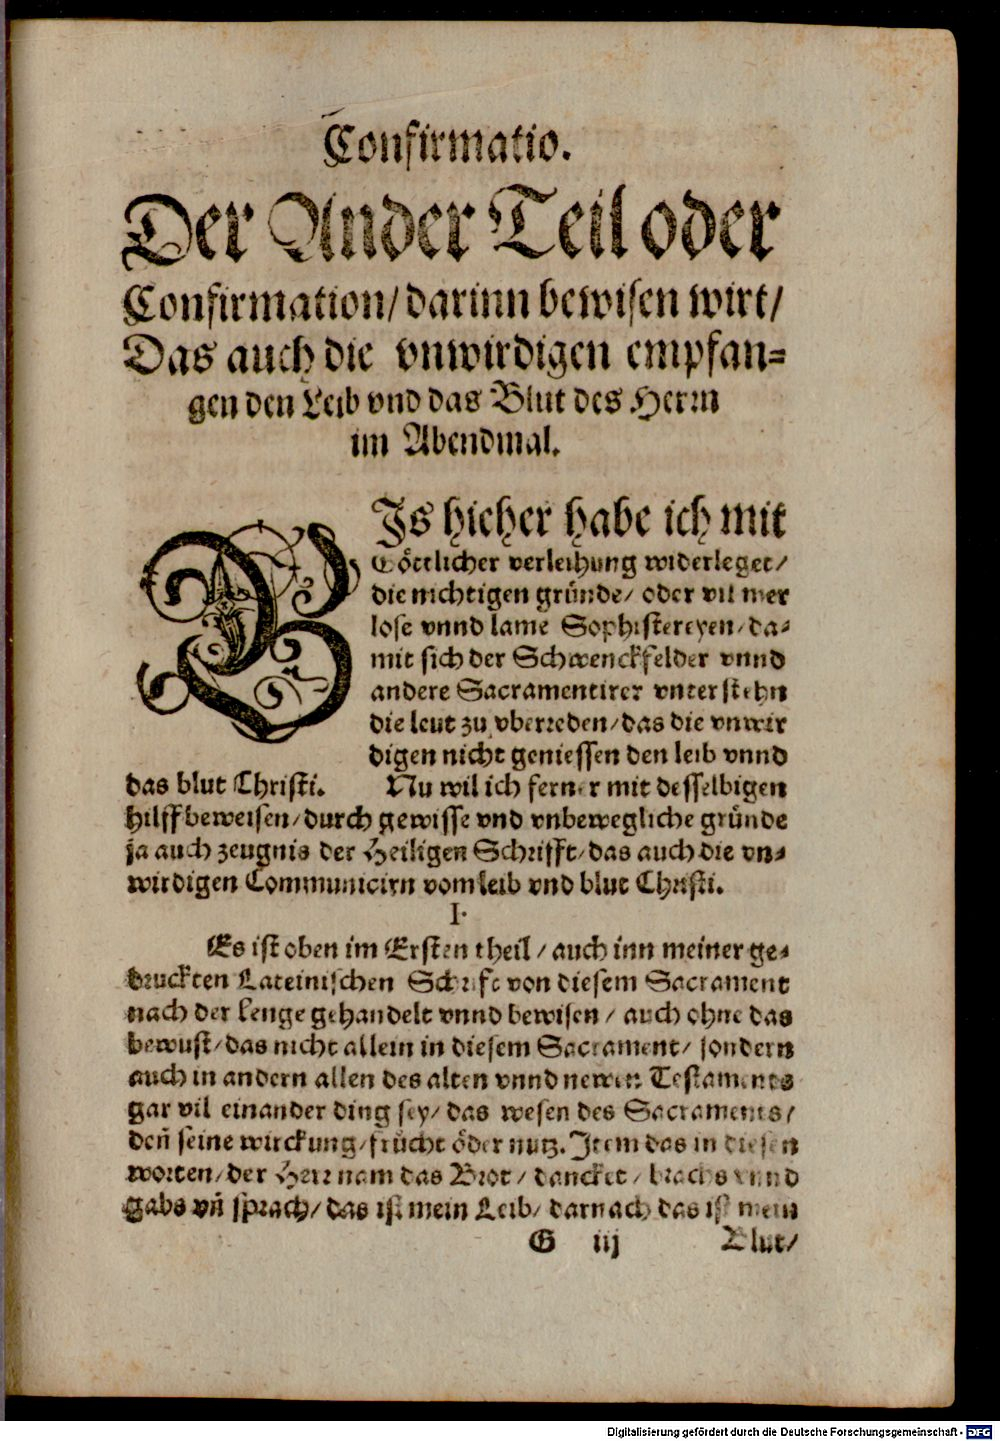 Confirmatio.
Der Ander Teil oder
Confirmation/ darinn bewisen wirt/
Das auch die vnwirdigen empfan⸗
gen den Leib vnd das Blut des Herrn
im Abendmal.
BJs hieher habe ich mit
Göttlicher verleihung widerleget/
die nichtigen gründe/ oder vil mer
lose vnnd lame Sophistereyen/ da⸗
mit sich der Schwenckfelder vnnd
andere Sacramentirer vnterstehn
die leut zu vberreden/ das die vnwir
digen nicht geniessen den leib vnnd
das blut Christi. Nu wil ich ferner mit desselbigen
hilff beweisen/ durch gewisse vnd vnbewegliche gründe
ja auch zeugnis der Heiligen Schrifft/ das auch die vn⸗
wirdigen Communicirn vom leib vnd blut Christi.
I.
Es ist oben im Ersten theil/ auch inn meiner ge⸗
druckten Lateinischen Schrift von diesem Sacrament
nach der lenge gehandelt vnnd bewisen/ auch ohne das
bewust/ das nicht allein in diesem Sacrament/ sondern
auch in andern allen des alten vnnd newen Testaments
gar vil einander ding sey/ das wesen des Sacraments/
deñ seine wirckung/ frücht öder nutz. Jtem das in diesen
worten/ der Herr nam das Brot/ dancket/ brachs vnnd
gabs vñ sprach/ das ist mein Leib/ darnach das ist mein
G iij Blut/
Digitalisierung gefördert durch die Deutsche Forschungsgemeinschaft - DFG